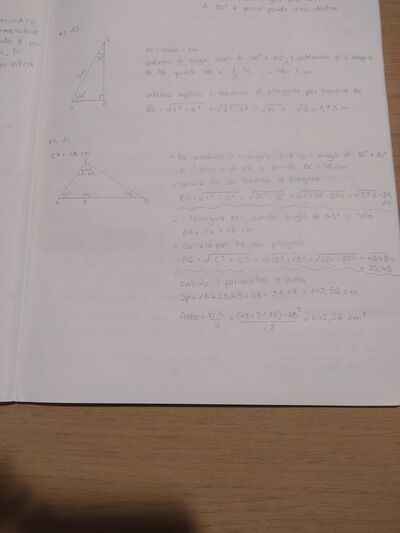 di 90° e
es 13
AC = scala = 2m
avendo gli angoli acuti di 30° e 60°, l'ipotenusa è il doppio
di AB quindi AB è 1/2 AC => AB = 1 m
adesso applico il teorema di pitagora per trovare BC
BC = √i² - c² = √2² - 1² = √4 - 1 = √3 = 1,73 m
es 14
CH = 18 cm
- BC, essendo il triangolo CHB con angoli di 30° e 60°,
è il doppio di CH e quindi BC = 36 cm
- calcolo BH con teorema di Pitagora
BH = √i² - c² = √36² - 18² = √1296 - 324 = √972 = 31,
17
- il triangolo AHC, avendo angoli di 45° il lato
AH = CH = 18 cm
- calcolo poi AC con pitagora
AC = √c² + c² = √18² + 18² = √324 + 324 = √648 =
= 25,45
calcolo il perimetro e area
2p = 18 + 25,45 + 36 + 31,17 = 110,52 cm
Area = b·h/2 = (18 + 31,17) · 18/2 = 442,26 cm²